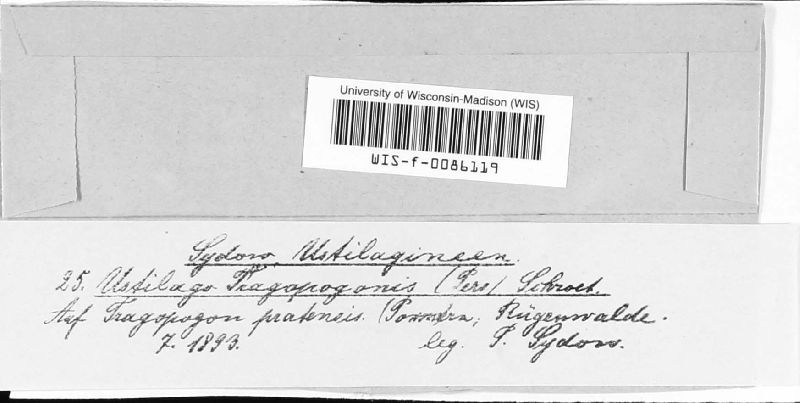 University of Wisconsin-Madison (WIS)
WIS-f-0086119
Sydow, Ustilagineen.
25. Ustilago Tragopogonis (Pers) Schroet.
Auf Tragopogon pratensis. (Pommern; Rügenwalde.
7. 1893. leg. P. Sydow.